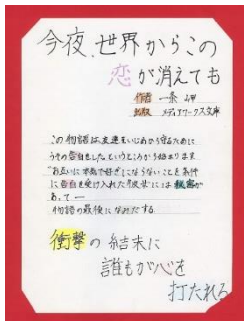 今夜、世界からこの
恋が消えても
作者 一条 岬
出版 メディアワークス文庫
この物語は友達をいじめから守るために
うその告白をした、というところから始まります
"お互いに本気で好きにならないこと"を条件
に告白を受け入れた彼女には秘密が
あって―
物語の最後になみだする
衝撃の結末に
誰もが心を
打たれる